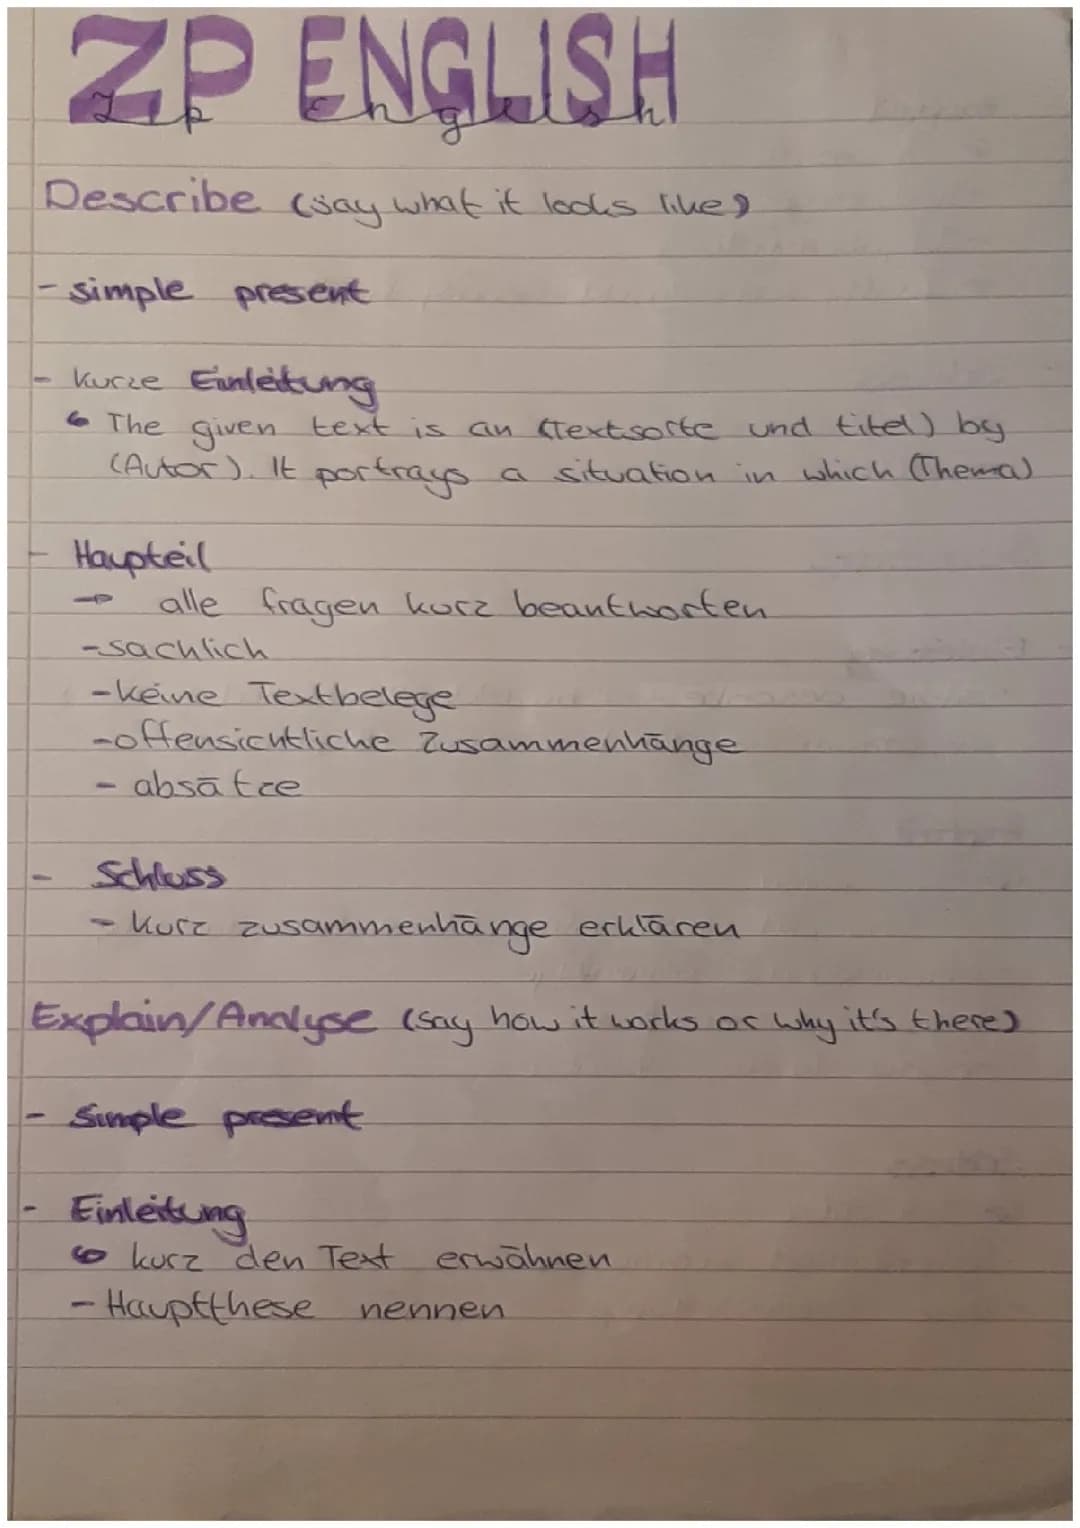 ZP ENGLISH
Zp English
Describe (say what it looks like)
- simple present
- kurze Einleitung
The given text is an (Textsorte und titel) by
(Autor). It portrays a situation in which (Thema)
- Haupteil
→ alle fragen kurz beantworten
- sachlich
- keine Textbelege
- offensichtliche Zusammenhänge
- absätze
- Schluss
- kurz zusammenhänge erklären
Explain/Analyse (say how it works or why it's there)
- Simple present
- Einleitung
kurz den Text erwähnen
- Hauptthese nennen